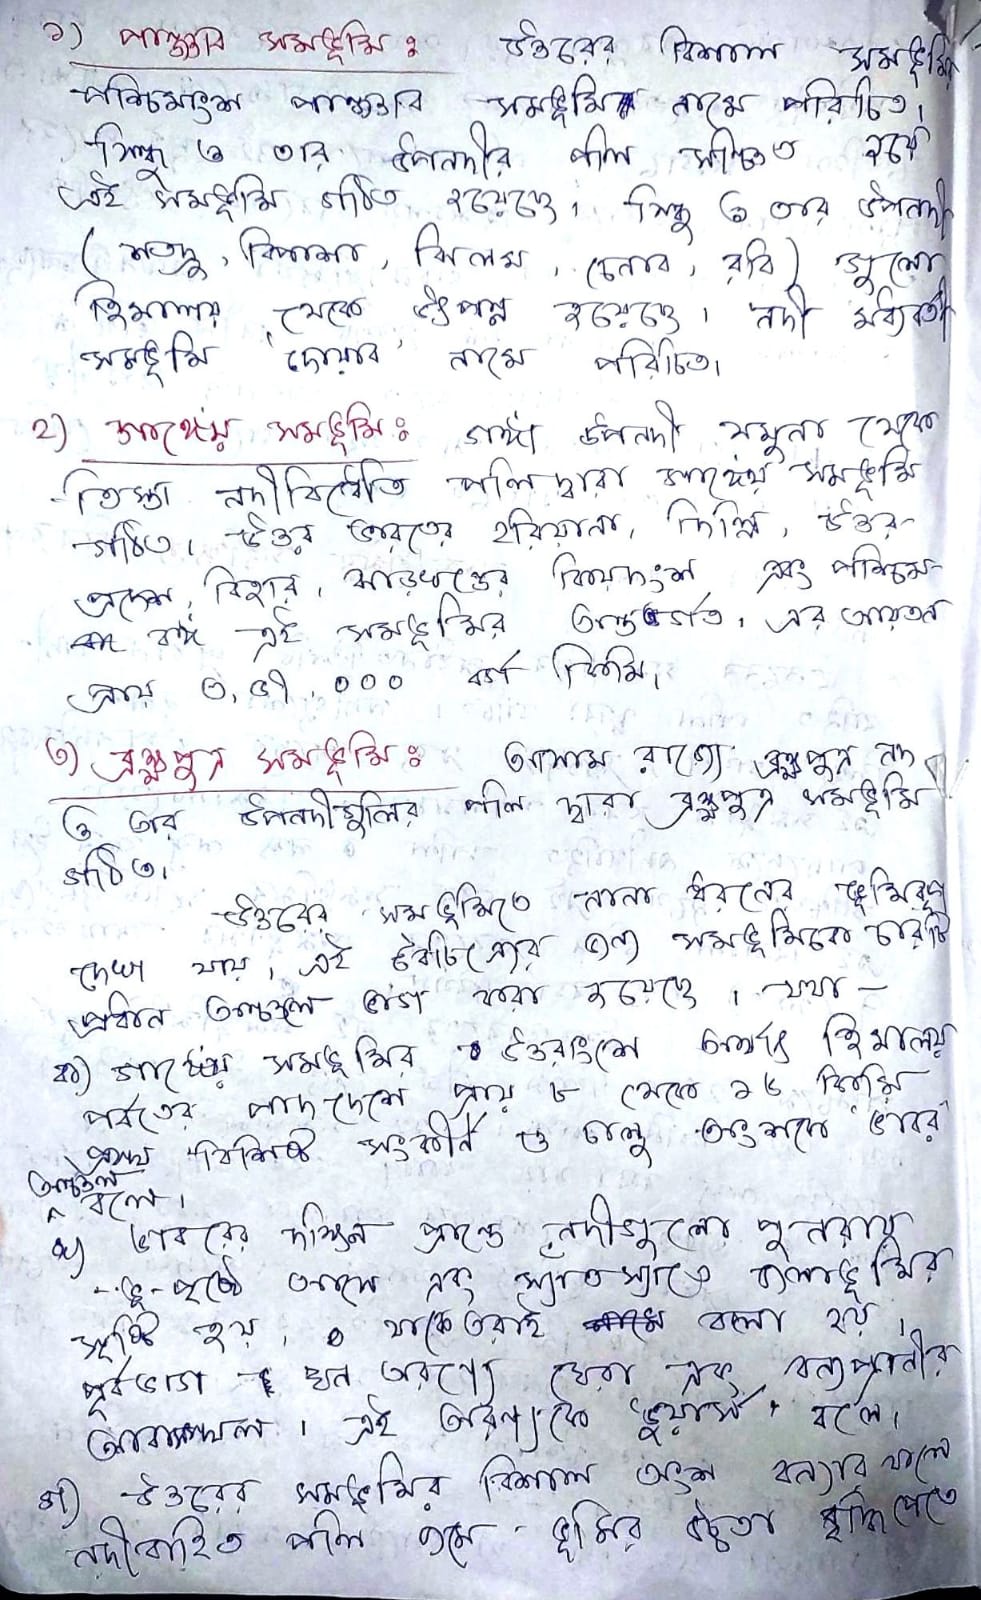 ১) পাঞ্জাব সমভূমি : উত্তরের বিশাল সমভূমির
পশ্চিমাংশ পাঞ্জাব সমভূমি নামে পরিচিত।
সিন্ধু ও তার উপনদীর পলি সঞ্চিত হয়ে
এই সমভূমি গঠিত হয়েছে। সিন্ধু ও তার উপনদী
(শতদ্রু, বিপাশা, ঝিলম, চেনাব, রবি) গুলো
হিমালয় থেকে উৎপন্ন হয়েছে। নদী মধ্যবর্তী
সমভূমি 'দোয়াব' নামে পরিচিত।
২) গাঙ্গেয় সমভূমি : গঙ্গা উপনদী যমুনা থেকে
তিস্তা নদীবিধৌত পলি দ্বারা গাঙ্গেয় সমভূমি
গঠিত। উত্তর ভারতের হরিয়ানা, দিল্লি, উত্তর-
প্রদেশ, বিহার, ঝাড়খণ্ডের কিয়দংশ এবং পশ্চিম-
বঙ্গ এই সমভূমির অন্তর্গত। এর আয়তন
প্রায় ৩,৫৭,০০০ বর্গ কিমি।
৩) ব্রহ্মপুত্র সমভূমি : আসাম রাজ্যে ব্রহ্মপুত্র নদ
ও তার উপনদীগুলির পলি দ্বারা ব্রহ্মপুত্র সমভূমি
গঠিত।
উত্তরের সমভূমিতে নানা ধরনের ভূমিরূপ
দেখা যায়। এই বৈচিত্র্যের জন্য সমভূমিকে চারটি
প্রধান অঞ্চলে ভাগ করা হয়েছে। যথা —
ক) গাঙ্গেয় সমভূমির উত্তরাংশে অর্থাৎ হিমালয়
পর্বতের পাদদেশে প্রায় ৮ থেকে ১৬ কিমি
প্রস্থ বিশিষ্ট সংকীর্ন ও ঢালু অংশকে 'ভাবর'
অঞ্চল বলে।
খ) ভাবরের দক্ষিন প্রান্তে নদীগুলো পুনরায়
ভূ-পৃষ্ঠে আসে এবং স্যাতস্যাতে জলাভূমির
সৃষ্টি হয়, যাকে তরাই বলা হয়।
পূর্বভাগ ঘন অরণ্যে ঘেরা এবং বন্যপ্রানীর
আবাসস্থল। এই অরণ্যকে 'ডুয়ার্স' বলে।
গ) উত্তরের সমভূমির বিশাল অংশ বন্যার ফলে
নদীবাহিত পলি জমে ভূমির উচ্চতা বৃদ্ধি পেতে